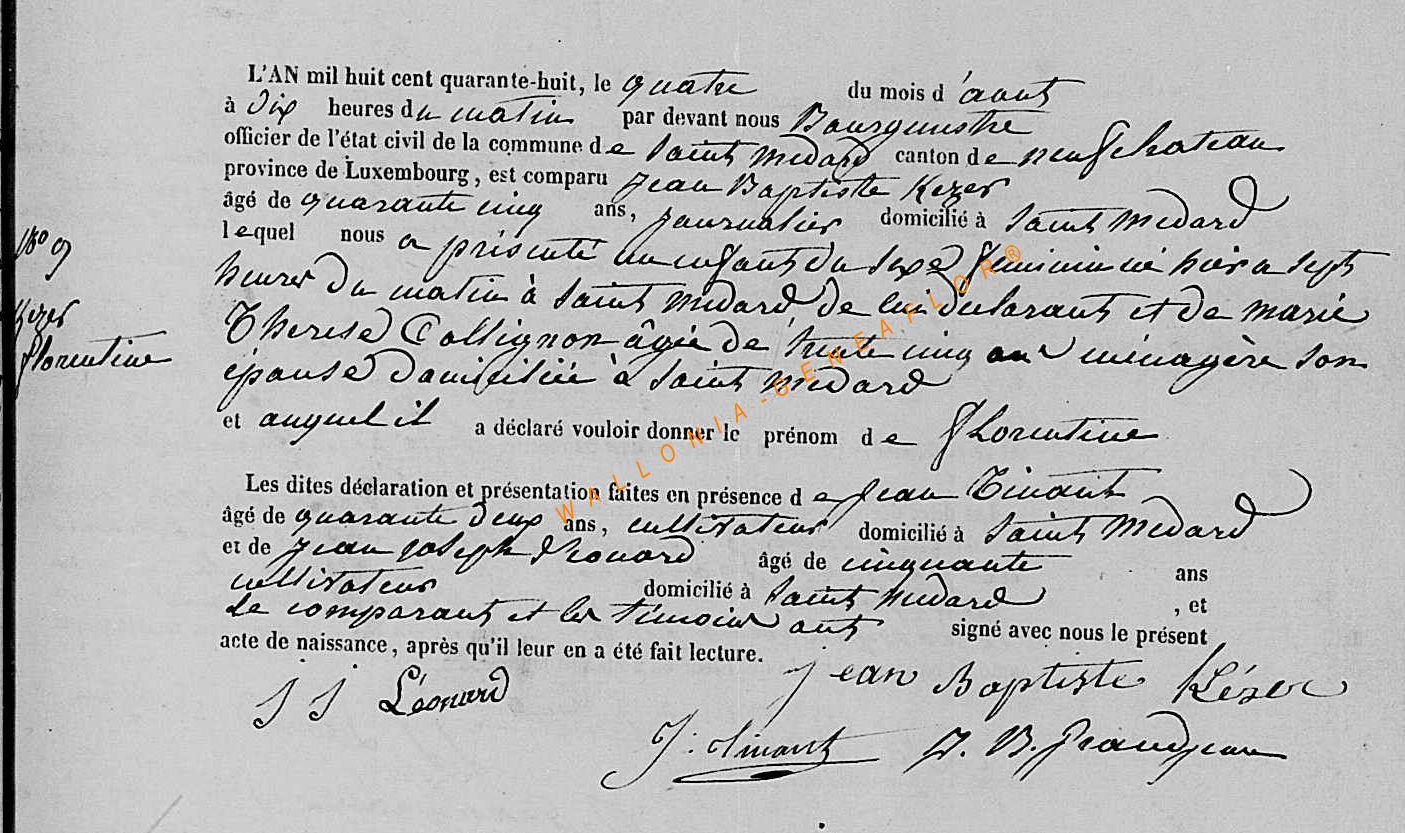 L'AN mil huit cent quarante-huit, le quatre du mois d'aout
à Dix heures du matin par devant nous Bourguestre
officier de l'état civil de la commune de Saint Medard canton de neufchateau
province de Luxembourg, est comparu Jean Baptiste Kezer
âgé de quarante cinq ans, journalier domicilié à Saint Medard
lequel nous a présenté un enfant du sexe feminin né hier a sept
heures du matin à Saint Medard, de lui declarant et de marie
Therese Collignon âgée de trente cinq ans ménagère son
épouse domiciliée à Saint Medard
et auquel il a déclaré vouloir donner le prénom de Florentine
No 9
Kezer
florentine
Les dites déclaration et présentation faites en présence de Jean Tinant
âgé de quarante deux ans, cultivateur domicilié à Saint Medard
et de Jean Joseph Léonard âgé de cinquante ans
cultivateur domicilié à Saint Medard, et
Le comparant et les témoins ont signé avec nous le présent
acte de naissance, après qu'il leur en a été fait lecture.
Jean Baptiste Kézer
J J Léonard
J. Tinant J. B. Grandjean
WALLONIA-GENEAFLOR®